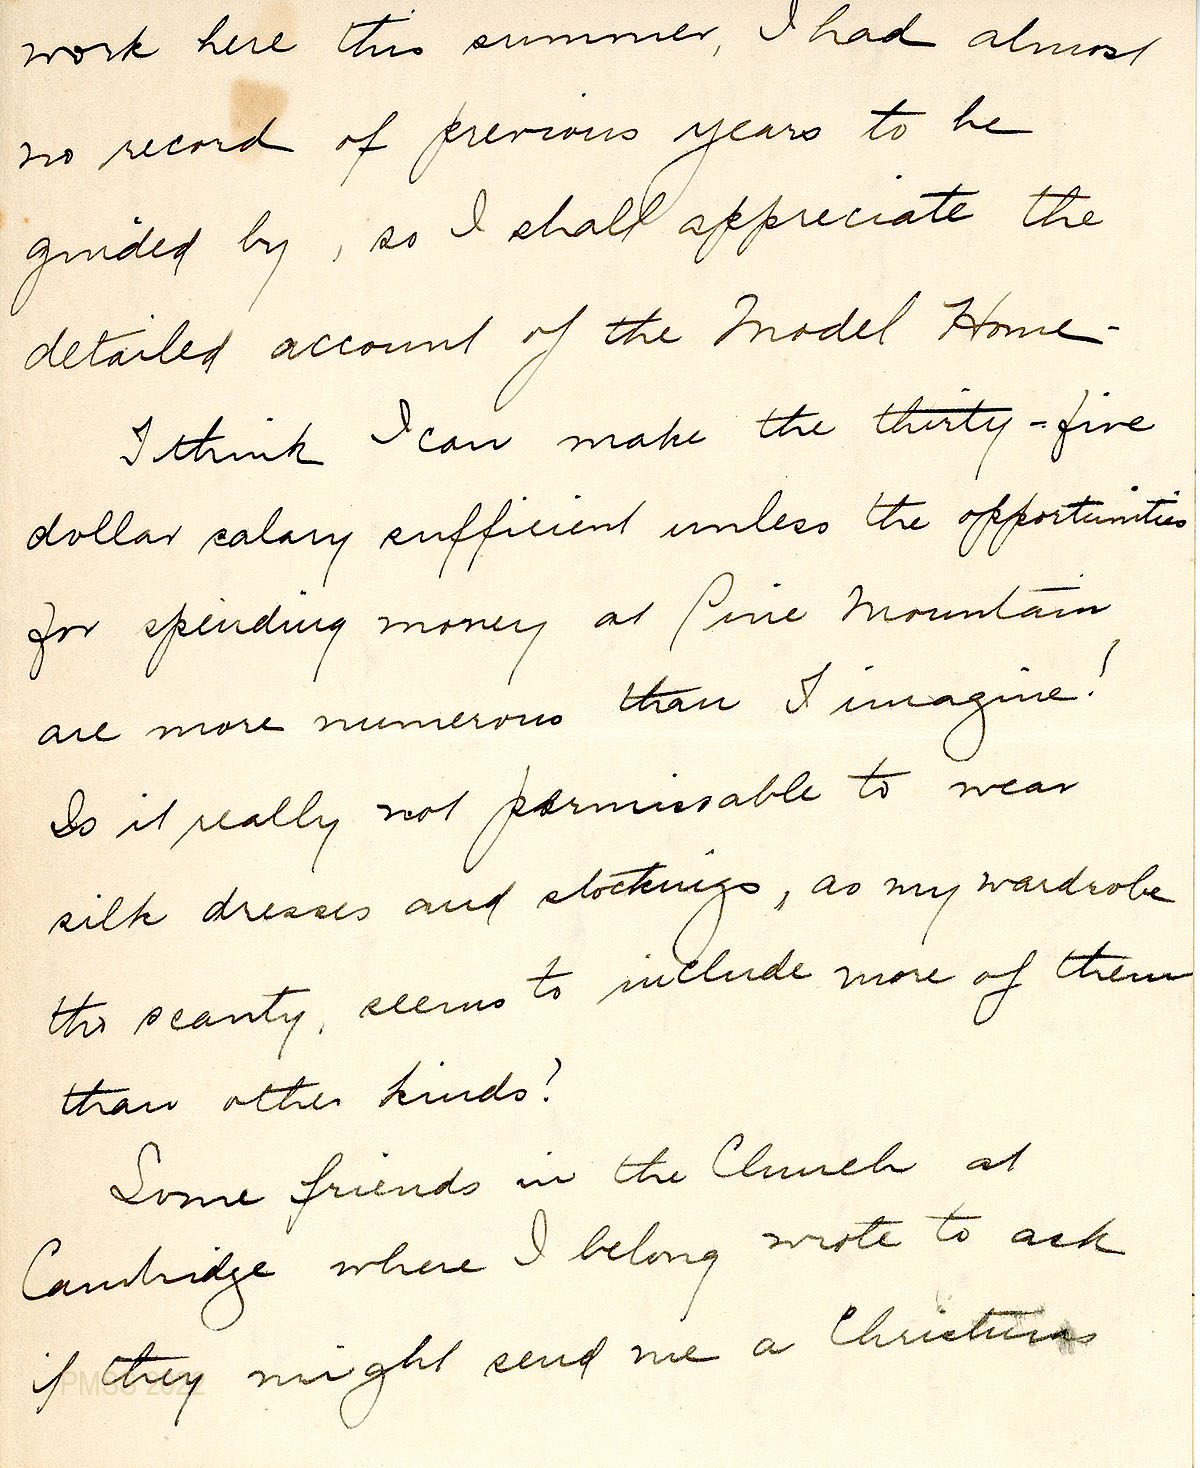 work here this summer, I had almost
no record of previous years to be
guided by, so I shall appreciate the
detailed account of the Model Home.
I think I can make the thirty-five
dollar salary sufficient unless the opportunities
for spending money at Pine Mountain
are more numerous than I imagine!
Is it really not permissable to wear
silk dresses and stockings, as my wardrobe
tho scanty, seems to include more of them
than other kinds?
Some friends in the Church at
Cambridge where I belong wrote to ask
if they might send me a Christmas
PMSS 2022